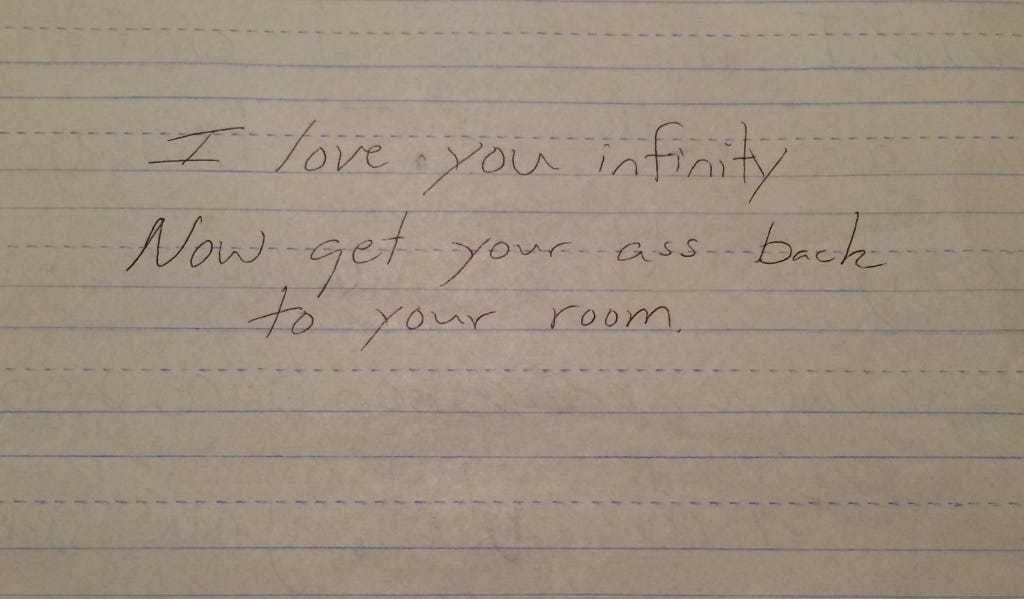 I love you infinity
Now get your ass back
to your room.